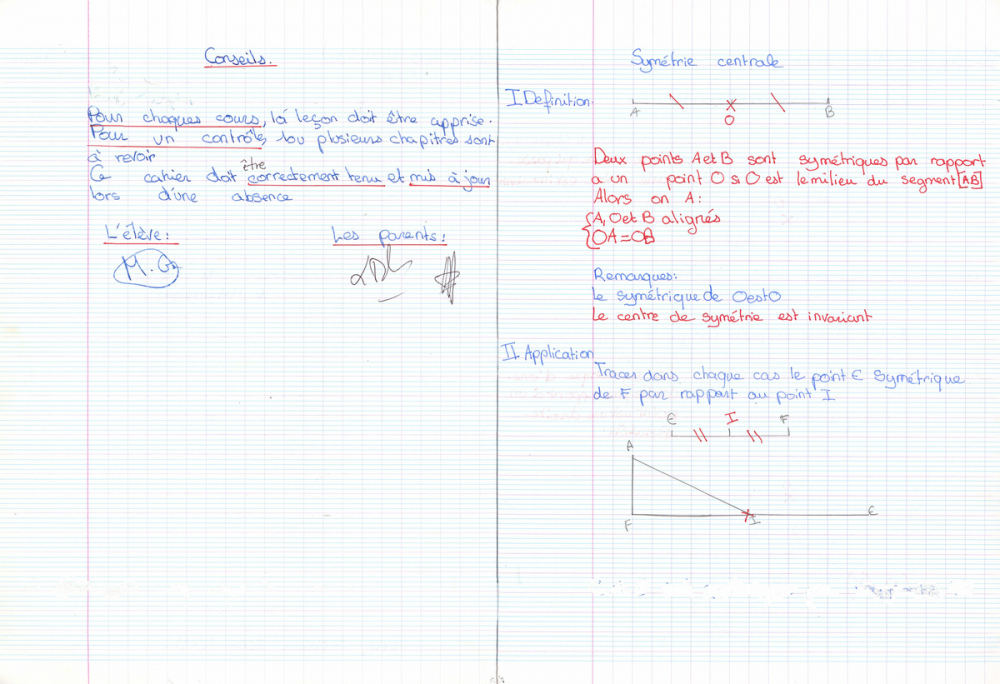 Conseils.
Pour chaques cours, la leçon doit être apprise.
Pour un contrôle, 1 ou plusieurs chapitres sont
à revoir
Ce cahier doit être correctement tenu et mis à jour
lors d'une absence
L'élève:
Les parents:
Symétrie centrale
I Definition
A O B
Deux points A et B sont symétriques par rapport
a un point O si O est le milieu du segment [AB]
Alors on A:
{A, O et B alignés
{OA=OB
Remarques:
le symétrique de O est O
Le centre de symétrie est invariant
II Application
Tracer dans chaque cas le point E Symétrique
de F par rapport au point I
E I F
A
F I E